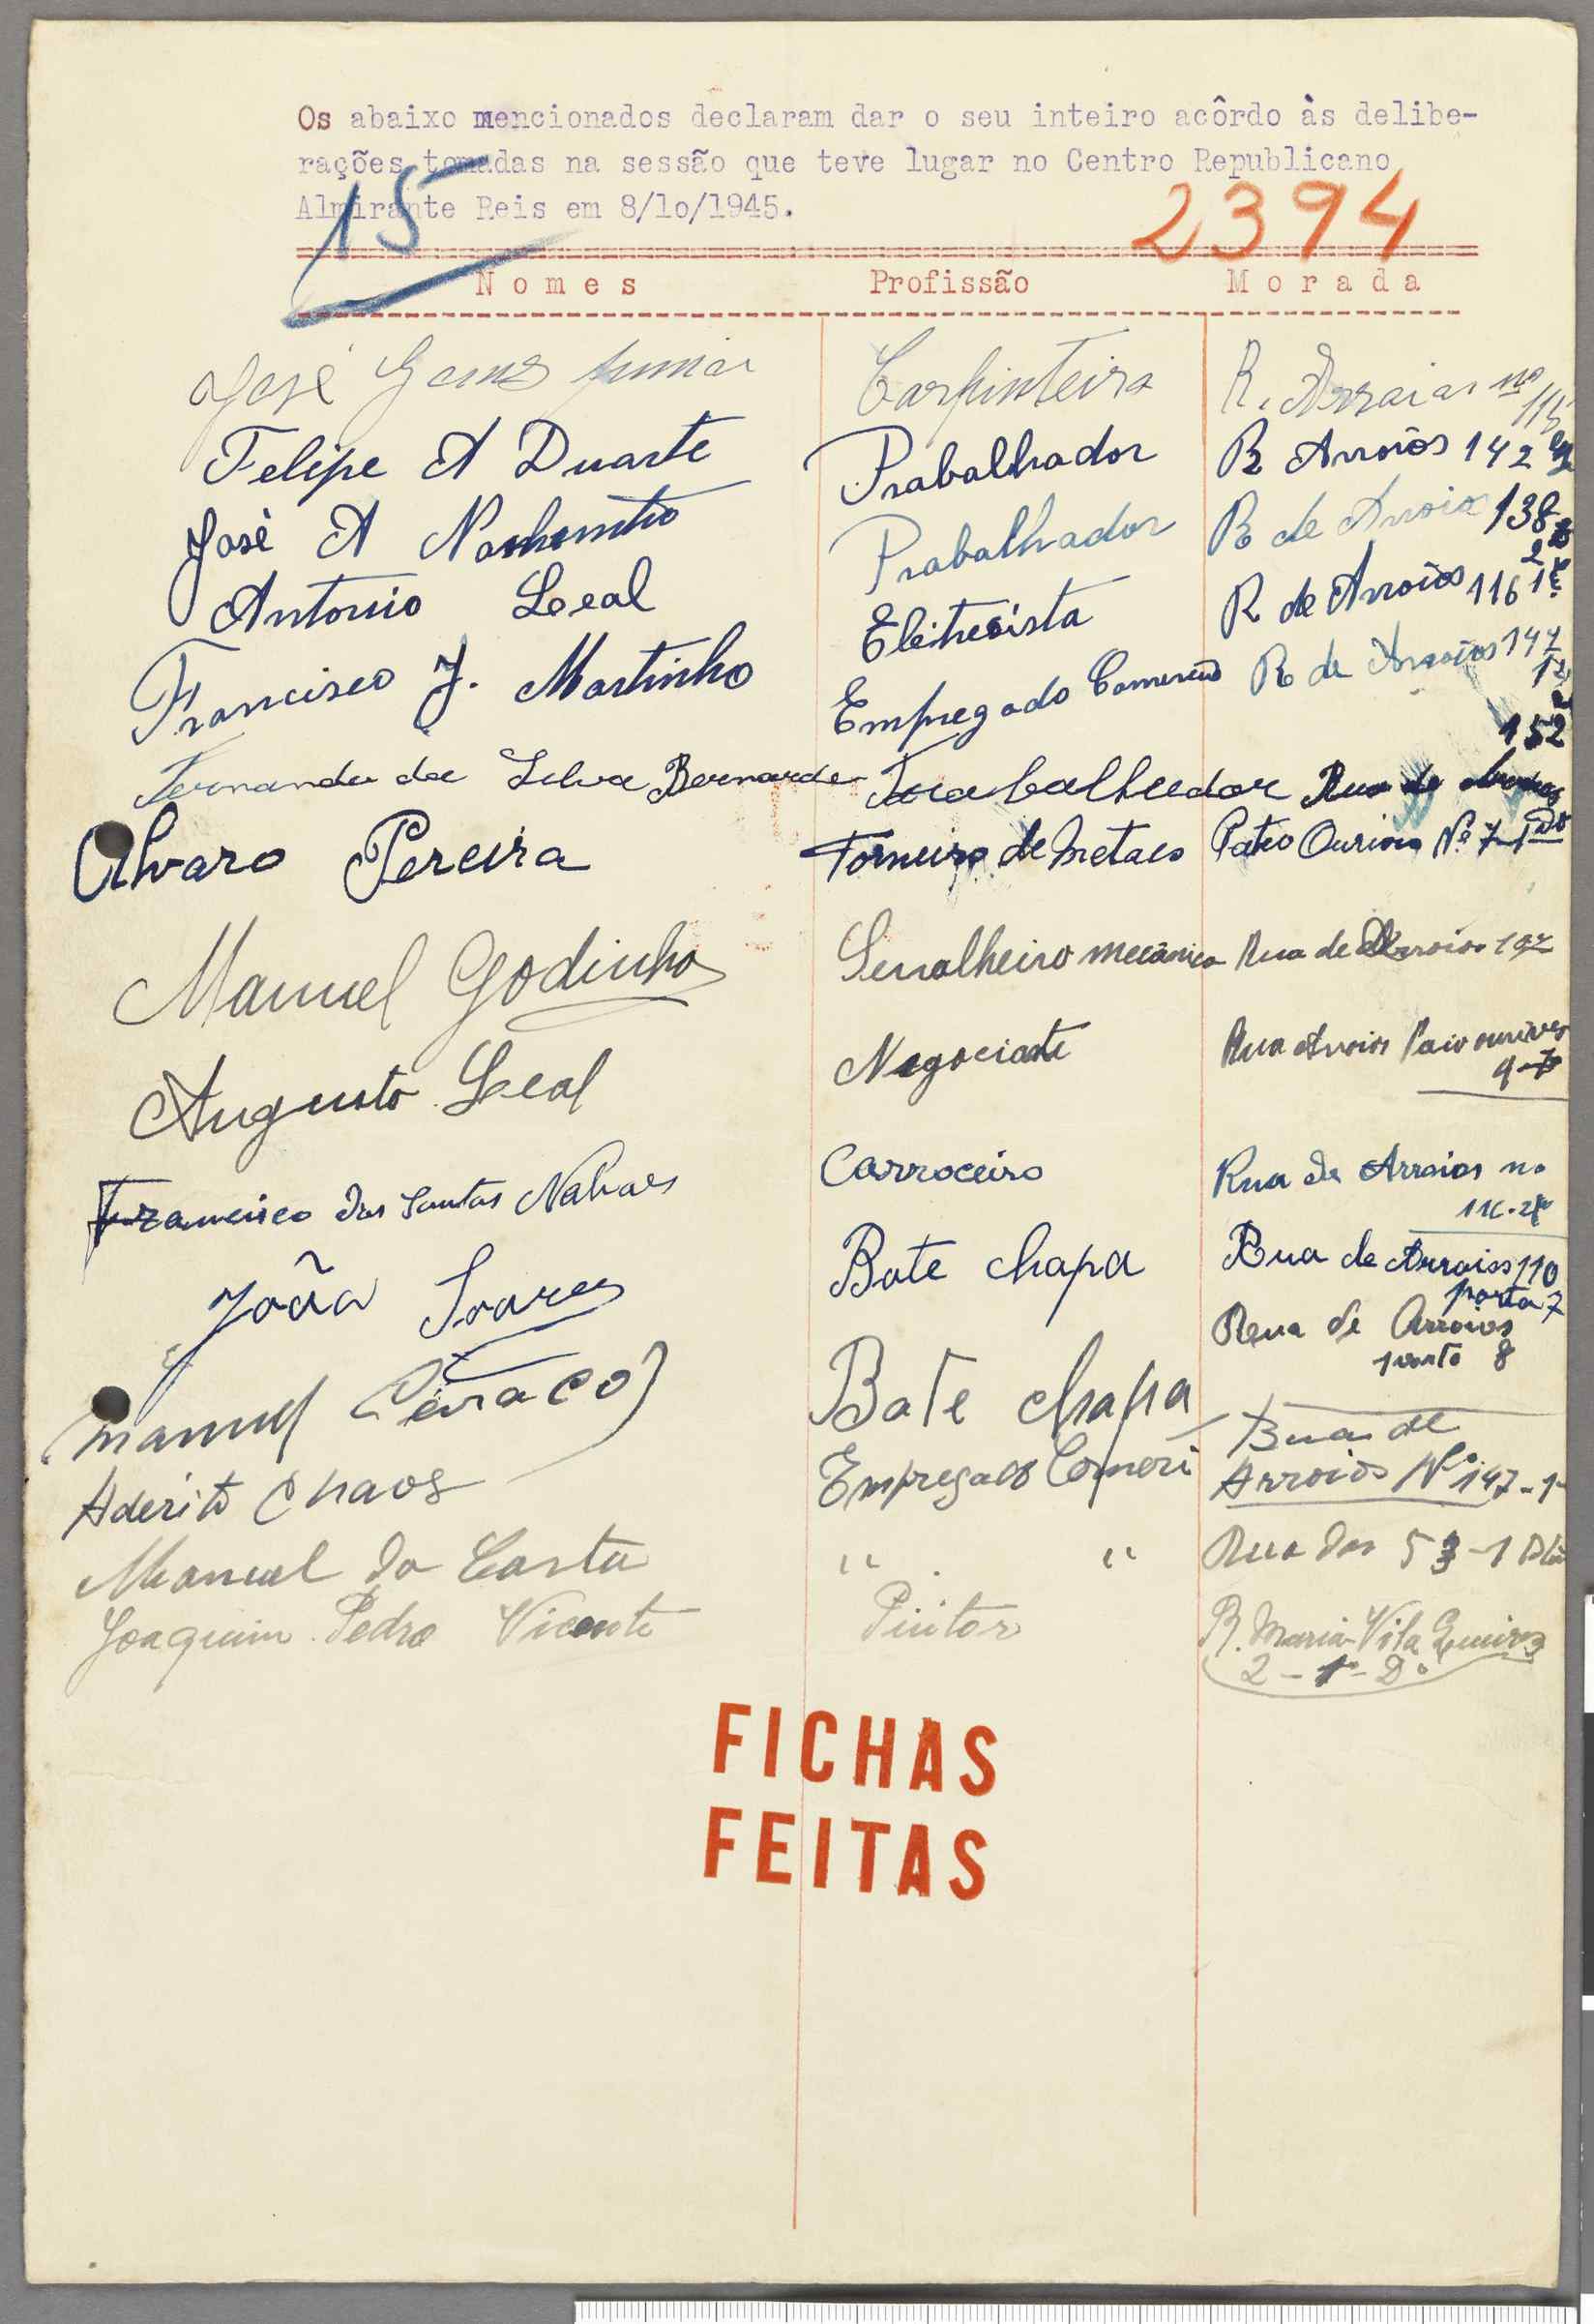 Os abaixo mencionados declaram dar o seu inteiro acôrdo às delibe-
rações tomadas na sessão que teve lugar no Centro Republicano
Almirante Reis em 8/lo/1945.
15
2394
Nomes Profissão Morada
José Gomes Junior Carpinteiro R. Arraias nº 115
Felipe A Duarte Trabalhador R Arroios 142
José A Trabalhador R de Arroios 138 2
Antonio Leal Eletrecista R de Arroios 116 1º
Francisco J. Martinho Empregado Comercio R de Arroios 147
152
Fernando da Silva Bernardo Trabalhador Rua de
Alvaro Pereira Torneiro de Metaes Patio Ourives Nº 7
Manuel Godinho Serralheiro mecanico Rua de Arroios
Augusto Leal Negociante Rua Arroios
Francisco dos Santos Carroceiro Rua de Arroios no
João Soares Bate chapa Rua de Arroios 110
porta 7
Manuel Bate chapa Rua de Arroios
porta 8
Aderito Chaos Empregado Comerci Rua de
Arroios Nº 147-1º
Manuel da Costa " " Rua das 53-1
Joaquim Pedro Vicente Pintor R. Maria Vila
2-1º-Dº
FICHAS
FEITAS